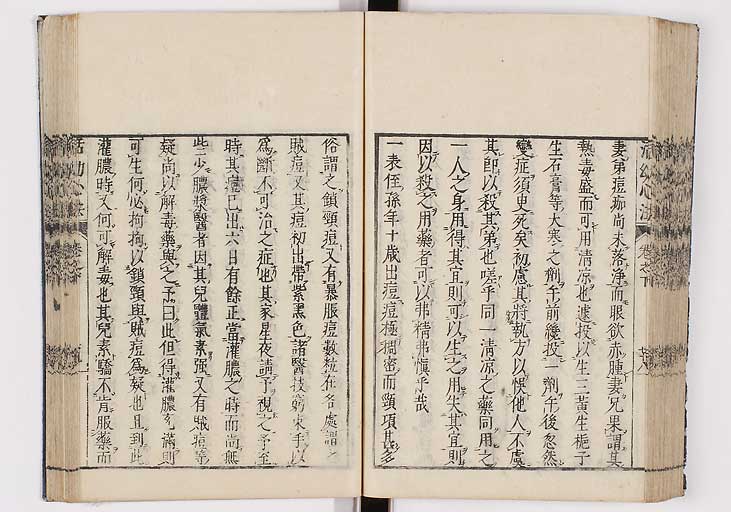 妻弟痘痂尚未落淨而眼欲赤腫妻兄果謂其
熱毒盛而可用清凉也遽投以生三黃生梔子
生石膏等大寒之劑午前纔投一劑午後忽然
變症須臾死矣初慮其將執方以悞他人不虞
其即以殺其弟也嗟乎同一清凉之藥同用之
一人之身用得其宜則可以生之用失其宜則
因以殺之用藥者可以弗精弗慎乎哉
一表侄孫年十歲出痘痘極稠密而頸項甚多
俗謂之鎖頸痘又有暴服痘數粒在各處謂之
賊痘又其痘初出帶紫黑色諸醫技窮束手以
爲斷不可治之症也其家星夜請予視之予至
時其痘已出六日有餘正當灌膿之時而尚無
些少膿漿醫者因其兒體氣素强又有賊痘等
疑尚以解毒藥與之予曰此但得灌膿充滿則
可生何必拘拘以鎖頸與賊痘爲疑也且到此
灌膿時又何可解毒也其兒素驕不肯服藥而
活幼心法
卷之下